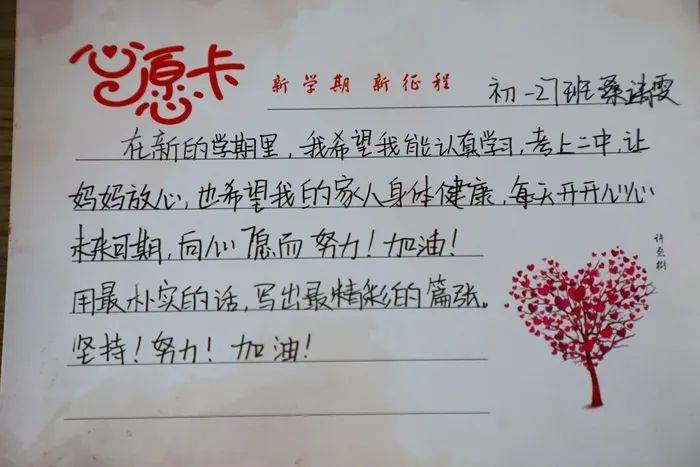 心愿卡
新学期 新征程
初一27班桑诗雯
在新的学期里，我希望我能认真学习，考上二中，让
妈妈放心，也希望我的家人身体健康，每天开开心心
未来可期，向心愿而努力！加油！
用最朴实的话，写出最精彩的篇张。
坚持！努力！加油！
许愿树